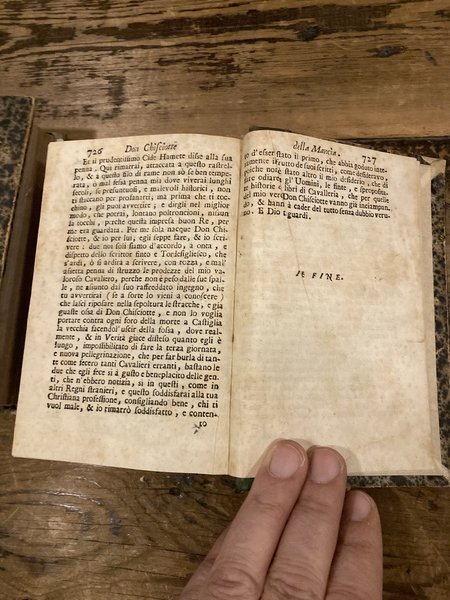 726 Don Chisciotte
Et il prudentissimo Cide Hamete disse alla sua
penna. Qui rimarrai, attaccata a questo rastrel-
lo, & a questo filo di rame non sò se ben tempe-
rata, o mal fesa penna mia dove viverai lunghi
secoli, se presuntuosi, e malevoli historici, non
ti staccano per profanarti, ma prima che ti toc-
chino, gli puoi avvertire, e dirgli nel miglior
modo, che potrai, lontano poltroncioni, nissun
la tocchi, perche questa impresa buon Re, per
me era guardata. Per me sola nacque Don Chi-
sciotte, & io per lui; egli seppe fare, & io scri-
vere: due noi soli siamo d'accordo, a onta, e
dispetto dello scrittor finto e Tordesigliesco, che
s'ardì, ò si ardirà a scrivere, con rozza, e mal'
assetta penna di struzzo le prodezze del mio va-
loroso Cavaliero, perche non è pesodalle sue spal-
le, ne assunto dal suo raffreddato ingegno, che
tu avvertirai (se a sorte lo vieni a conoscere)
che lasci riposare nella sepoltura le stracche, e già
guaste ossa di Don Chisciotte, e non lo voglia
portare contra ogni foro della morte a Castiglia
la vecchia facendol' uscir della fossa, dove real-
mente, & in Verità giace disteso quanto egli è
lungo, impossibilitato di fare la terza giornata,
e nuova pellegrinazione, che per far burla di tan-
te come fecero tanti Cavalieri erranti, bastano le
due che egli fece sì à gusto e beneplacito delle gen-
ti, che n'ebbero notizia, sì in questi, come in
altri Regni stranieri, e questo soddisfarai alla tua
Christiana professione, consigliando bene, chi ti
vuol male, & io rimarrò soddisfatto, e conten-
to
della Mancia. 727
o d'esser stato il primo, che abbia goduto inte-
ramente il frutto de suoi scritti, come desiderava,
poiche non è stato altro il mio desiderio, che di
fare odiare gl'Uomini, le finte, e spropositate
historie e libri di Cavalleria, che per quelle
del mio vero Don Chisciotte vanno già inciampan-
do, & hannò à cader del tutto senza dubbio veru-
no. E Dio ti guardi.
IL FINE.